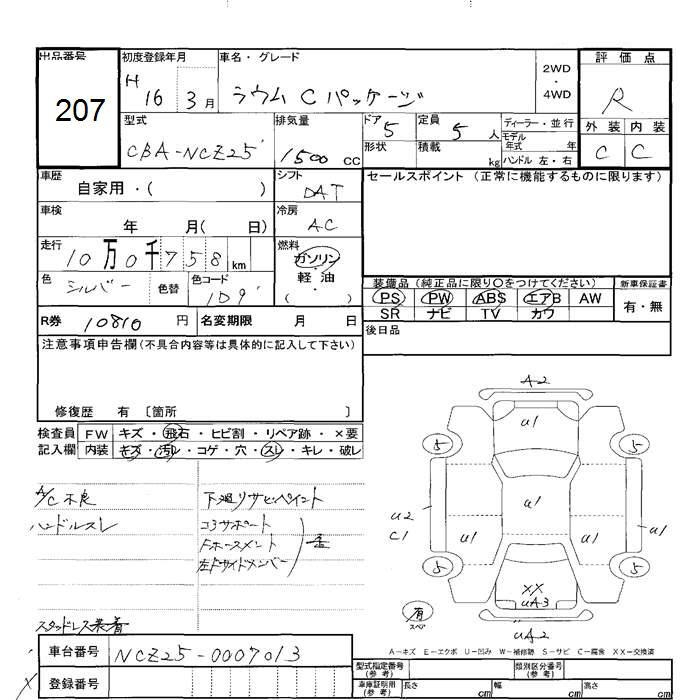 出品番号
207
初度登録年月
H 16 3月
車名・グレード
ラウム C パッケージ
2WD
・
4WD
評価点
R
外装 内装
C C
型式
CBA-NCZ25
排気量
1500 CC
ドア 5
形状
定員 5 人
積載 kg
ディーラー・並行
モデル年式 年
ハンドル 左・右
車歴
自家用・( )
シフト
DAT
セールスポイント (正常に機能するものに限ります)
車検
年 月( 日)
冷房
AC
走行
10万0千758 km
燃料
ガソリン
軽油
( )
色
シルバー
色替
色コード
1D9
装備品 (純正品に限り○をつけてください)
PS PW ABS エアB AW
SR ナビ TV カワ
新車保証書
有・無
R券 10810 円
名変期限 月 日
後日品
注意事項申告欄(不具合内容等は具体的に記入して下さい)
修復歴 有 〔箇所 〕
検査員記入欄
FW キズ・飛石・ヒビ割・リペア跡・×要
内装 キズ・汚レ・コゲ・穴・スレ・キレ・破レ
A/C不良
ハンドルスレ
スタッドレス装着
下廻リサビペイント
コアサポート
Fホースメント
左Fサイドメンバー
A2
U1
5 5
U1
U2
C1
U1 U1
U1
5 5
XX
UA3
UA2
有
スペア
A-キズ E-エクボ U-凹み W-補修跡 S-サビ C-腐食 XX-交換済
車台番号
NCZ25-0007013
登録番号
型式指定番号
(参考)
類別区分番号
(参考)
車庫証明用
(参考)
長さ cm
幅 cm
高さ cm